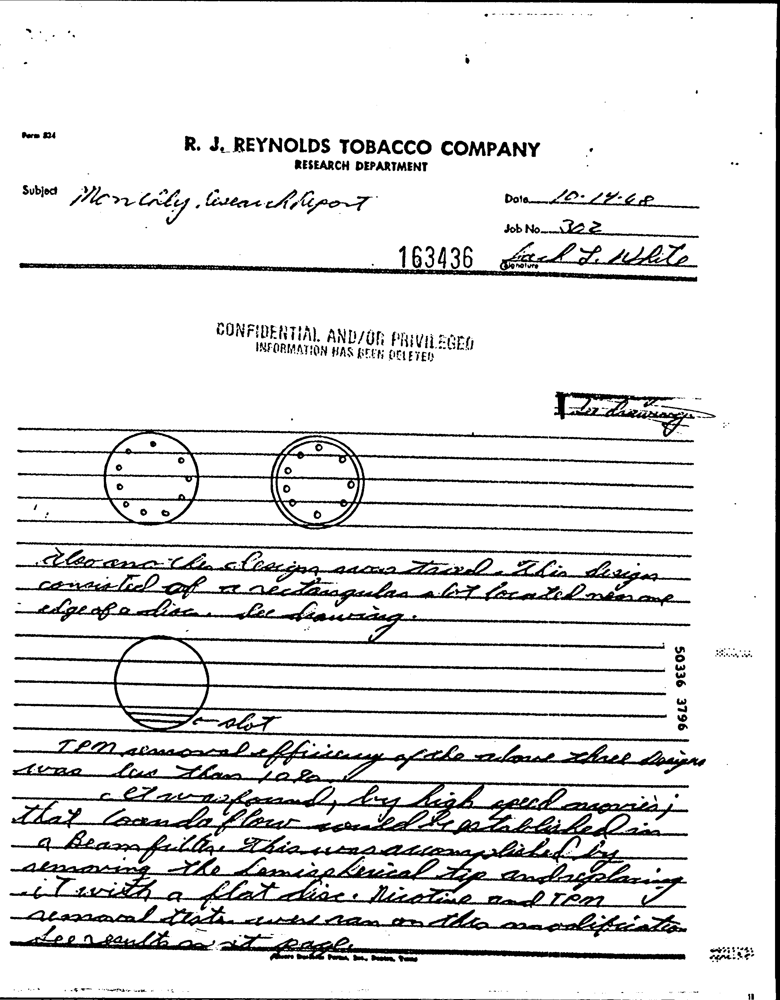 Form 834
R. J. REYNOLDS TOBACCO COMPANY
RESEARCH DEPARTMENT
Subject Monthly Research Report
Date 10-14-68
Job No. 302
163436
L. White
Signature
CONFIDENTIAL AND/OR PRIVILEGED
INFORMATION HAS BEEN DELETED
drawing
Also another design was tried. This design
consisted of a rectangular slot located near one
edge of a disc. See drawing.
50336 3796
slot
TPM removal efficiency of the above three designs
was less than 10%.
It was found, by high speed movies,
that Coanda flow would be established in
a Beam filter. This was accomplished by
removing the hemispherical tip and replacing
it with a flat disc. Nicotine and TPM
removal tests were ran on this modification
See results page